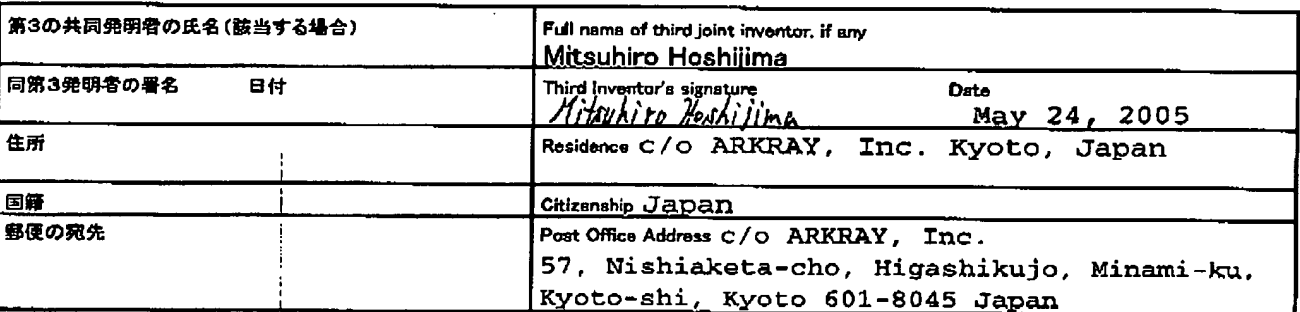 第3の共同発明者の氏名(該当する場合)
Full name of third joint inventor, if any
Mitsuhiro Hoshijima
同第3発明者の署名 日付
Third Inventor's signature Date
Mitsuhiro Hoshijima May 24, 2005
住所
Residence c/o ARKRAY, Inc. Kyoto, Japan
国籍
Citizenship Japan
郵便の宛先
Post Office Address c/o ARKRAY, Inc.
57, Nishiaketa-cho, Higashikujo, Minami-ku,
Kyoto-shi, Kyoto 601-8045 Japan